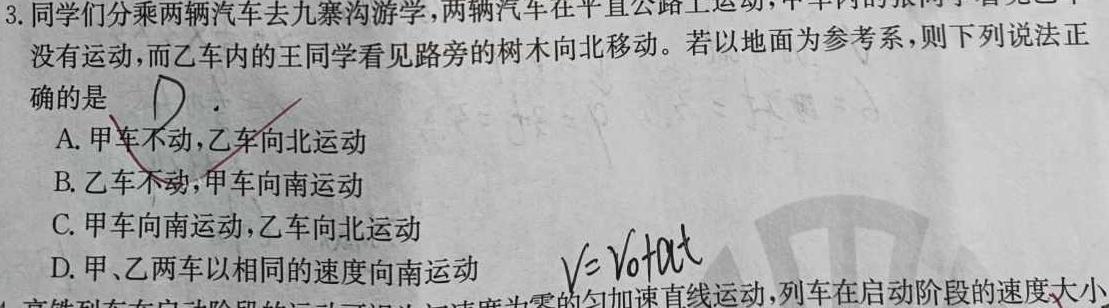 3.同学们分乘两辆汽车去九寨沟游学,两辆汽车在平直公路上运动,甲车内的张同学看见乙车
没有运动,而乙车内的王同学看见路旁的树木向北移动。若以地面为参考系,则下列说法正
确的是 D.
A. 甲车不动,乙车向北运动
B. 乙车不动,甲车向南运动
C. 甲车向南运动,乙车向北运动
D. 甲、乙两车以相同的速度向南运动
V=V0+at
零的匀加速直线运动,列车在启动阶段的速度大小